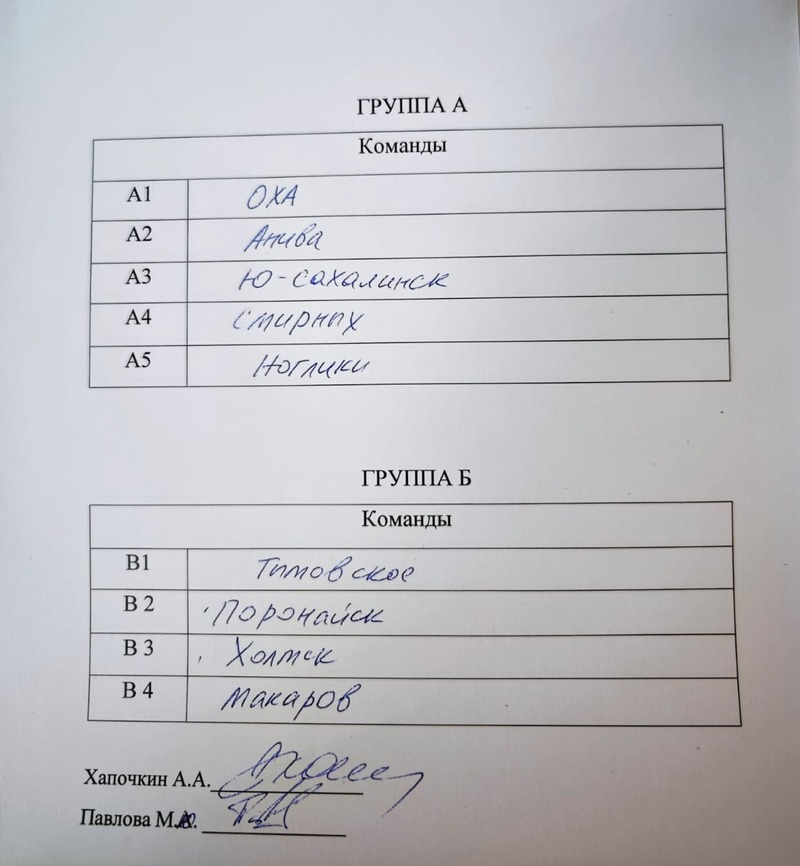 ГРУППА А
Команды
А1 ОХА
А2 Анива
А3 Ю-сахалинск
А4 Смирных
А5 Ноглики
ГРУППА Б
Команды
В1 Тымовское
В 2 Поронайск
В 3 Холмск
В 4 Макаров
Хапочкин А.А.
Павлова М.